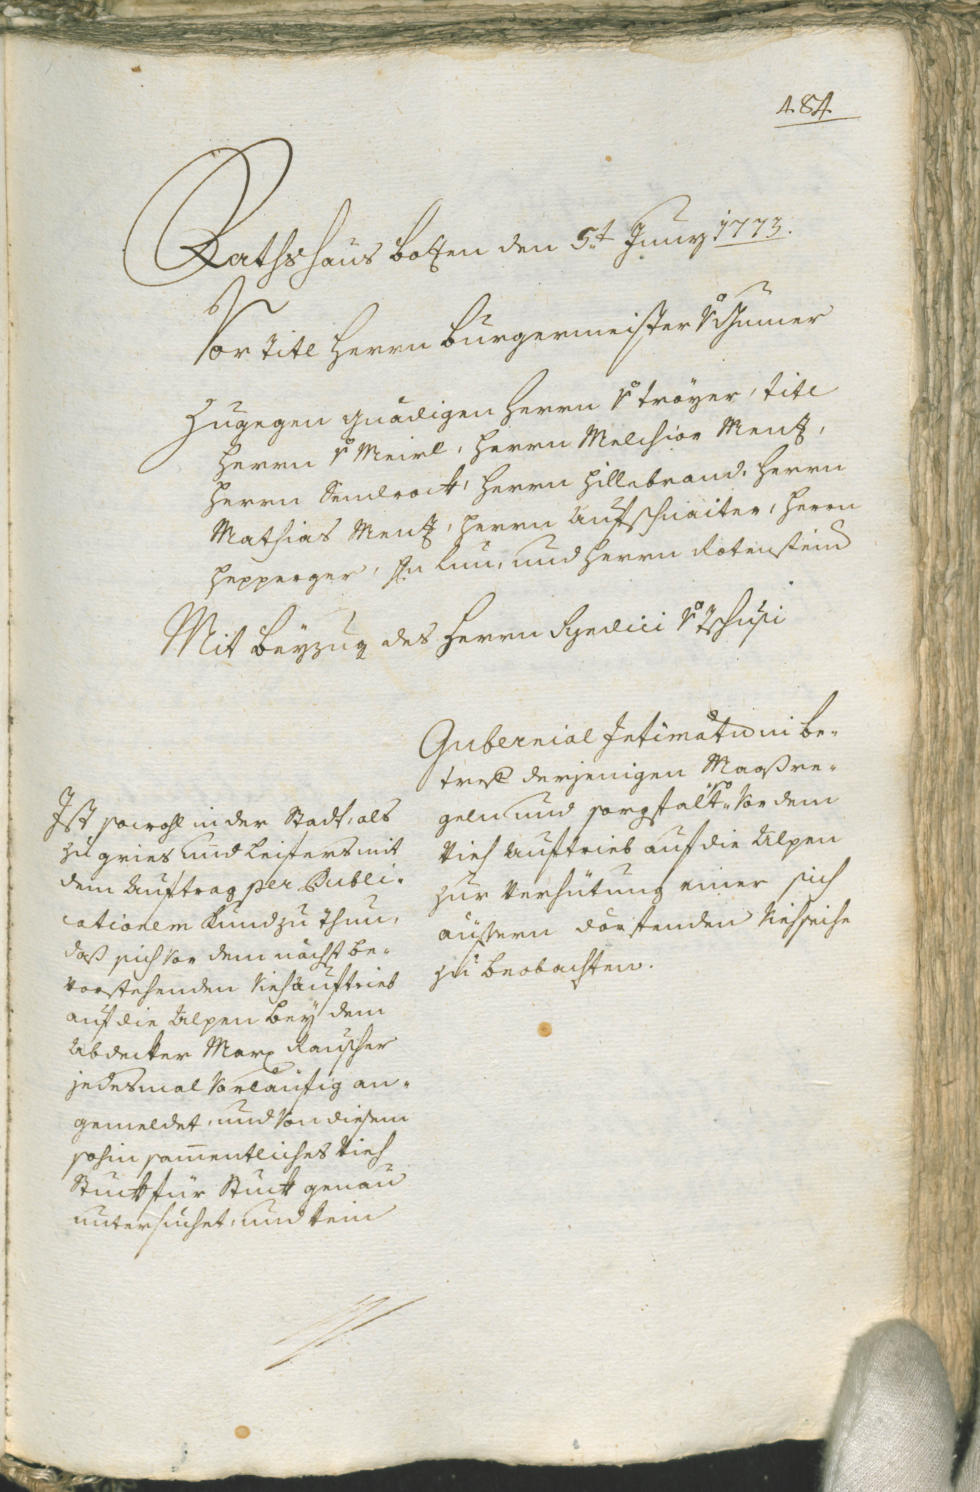 484.
Rathshaus Botzen den 5.t Juny 1773.
Vor Titl Herrn Burgermeister v Gumer
Zugegen gnädigen Herrn v Troyer, Titl
Herrn v Meirl, Herrn Melchior Mentz,
Herrn Sendrock, Herrn Hillebrand, Herrn
Mathias Mentz, Herrn Aufschnaiter, Herrn
Hepperger, und Herrn Rotenstein
Mit Beyzug des Herrn Syndici v Tschusi
Gubernial Intimation be-
tref derjenigen Maaßre-
geln und sorgfalt, vor dem
Vieh Auftrieb auf die Alpen
zur Verhütung einer sich
äussern dörfenden Viehseiche
zu beobachten.
Ist sowohl in der Stadt, als
zu Gries und Leifers mit
dem Auftrag per Publi-
cationem kund zu thun,
daß sich vor dem nächst be-
vorstehenden Viehauftrieb
auf die Alpen bey dem
Abdecker Marx Rauscher
jedesmal vorläufig an-
gemeldet, und von diesem
sohin samentliches Vieh
Stuck für Stuck genau
untersuchet, und kein